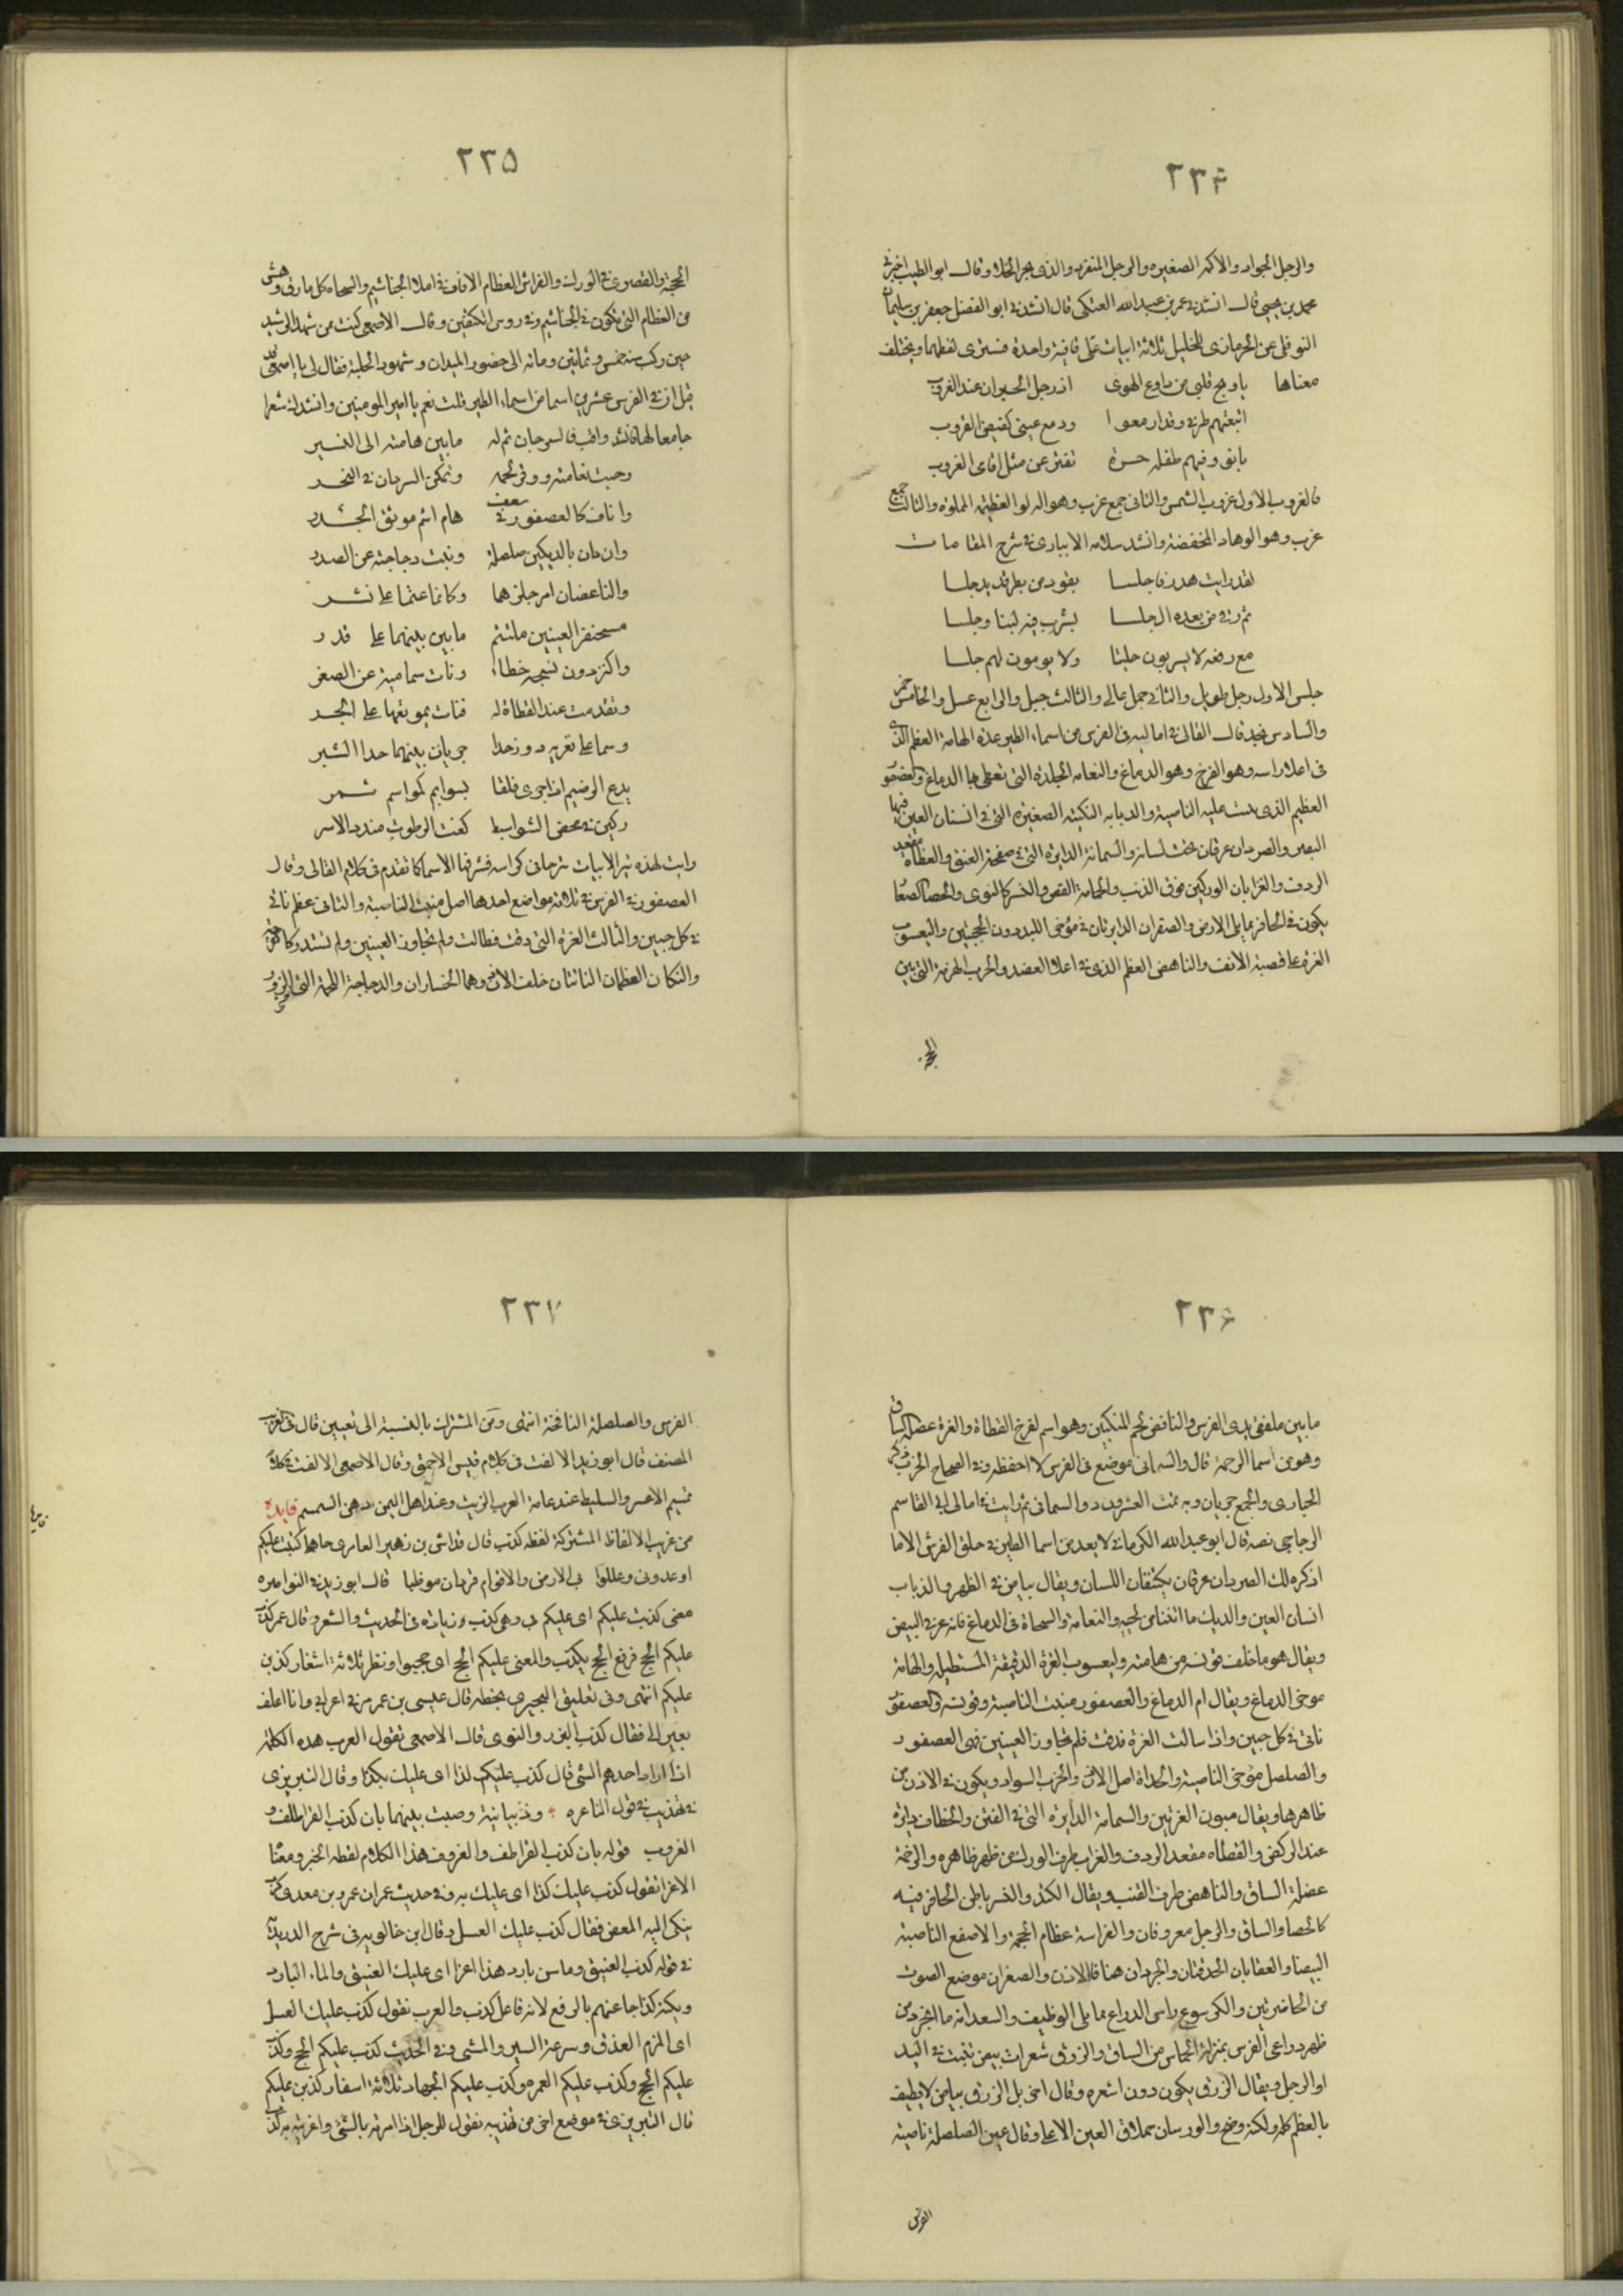 ٢٣٤
والرجل الجواد والاكمه الصغيره والرجل المنفرد والذى هجر الخلاء وقال ابو الطيب اخبرنى
محمد بن يحيى قال انشدنى عمر بن عبد الله العتكى قال انشدنى ابو الفضل جعفر بن سليمان
النوفلى عن الحرمازى للخليل ثلاثة ابيات على قافية واحدة يستوى لفظها ويختلف
معناها يا ويح قلبى من دواعى الهوى اذ رحل الجيران عند الغروب
اتبعتهم طرفى وقد ازمعوا ودمع عينى كفيض الغروب
بانو وفيهم طفلة حرة تفتر عن مثل اقاحى الغروب
فالغروب الاول غروب الشمس والثانى جمع غرب وهو الدلو العظيمة المملوه والثالث جمع
غرب وهو الوهاد المنخفضة وانشد سلامه الانبارى فى شرح المقامات
لقد رايت هدرفا جلسا يقود من بطن قديد جلسا
ثم رقى من بعده الى جلسا يشرب فيه لبنا وجلسا
مع رفقه لا يشربون جلسا ولا يومون لهم جلسا
جلس الاول رجل طويل والثانى جمل عالى والثالث جبل والرابع عسل والخامس خمر
والسادس نجد قال القالى فى اماليه فى الفرس من اسماء الطير عده الهامة العظم الذى
فى اعلا راسه وهو الفرخ وهو الدماغ والنعامه الجلدة التى تغطى بها الدماغ والعصفور
العظيم الذى نبت عليه الناصية والذبابه النكتة الصغيره التى فى انسان العين فيها
البصر والصردان عرقان تحت لسانه والسمانة الدايره التى فى صفحة العنق والقطاة مقعد
الردف والغرابان الوركين فوق الذنب والحمامة القص والنسر كالنوى والحصا الصغا
يكون فى الحافر مما يلى الارض والصقران الدايرتان فى موخر اللبد دون الحجبتين واليعسوب
الغرة على قصبة الانف والناهض العظم الذى فى اعلا العضد والخرب الهزمة التى بين
الحجبة
٢٣٥
الحجبة والقصرى فى الورك والفراش العظام الرقاق فى اعلا الخياشيم والسحاه كل ما رق وهش
من العظام التى تكون فى الخياشيم وفى روس الكتفين وقال الاصمعى كنت ممن شهد الرشيد
حين ركب سنة خمس وثمانين ومائه الى حضور الميدان وشهود الحلبة فقال لى يا اصمعى قد
قيل ان فى الفرس عشرين اسما من اسماء الطير قلت نعم يا امير المومنين وانشدك شعرا
جامعا لها فانشد واقب كالسرحان تم له ما بين هامته الى النسر
رحبت نعامته ووفر لحمه وتمكن الصردان فى النحر
واناف كالعصفور فى سعف هام اشم موثق الجذر
وازدان بالديكين صلصلة ونبت دجاجته عن الصدر
والناهضان امر جلزهما وكانما عثما على كسر
مسحنفر العينين ملتئم ما بين بينهما على قدر
واكنز دون قبيحه خطاف ونات سمامته عن الصقر
وتقدمت عند القطاة له فنات بموقعها على الحر
وسما على نقويه دون حدا خربان بينهما مدى الشبر
يدع الرضيم اذا جرى فلقا بتوايم كمواسم سمر
ركبن فى محض الشوا سبط كفت الوثوب مشدد الاسر
رايت لهذه الابيات شرحا فى كراسه فسر فيها الاسما كما تقدم فى كلام القالى وقال
العصفور فى الفرس فى ثلاثة مواضع احدها اصل منبت الناصية والثانى عظم ناتى
فى كل جبين والثالث الغرة التى دقت فطالت ولم تجاوز العينين ولم تستدر كالقرحة
والديكان العظمان الناتئان خلف الاذن وهما الخشاوان والدجاجة اللحمة التى على الزور
٢٣٦
ما بين ملفقى يدى الفرس والنافض لحم المنكبين وهو اسم لفرخ القطاة والغرة عضلة الساق
وهو من اسما الرخمة قال والسمانى موضع فى الفرس لا احفظه وفى الصحاح الخرب ذكر
الحبارى والجمع خربان وبه تمت العشرون دون السمانى ثم رايت فى امالى ابى القاسم
الزجاجى نصه قال ابو عبد الله الكرمانى لا يعد من اسما الطير فى خلق الفرس الا ما
اذكره لك الصردان عرقان يكتنفان اللسان ويقال بياض فى الظهر والذباب
انسان العين والديك ما انثنى من لحييه والنعامة والسحاة فى الدماغ كانه غرقى البيض
ويقال هو ما خلف قونسه من هامته واليعسوب الغرة الدقيقة المستطيلة والهامة
موخر الدماغ ويقال ام الدماغ والعصفور منبت الناصية وقونسه والعصفور
ناتى فى كل جبين واذا سالت الغرة فدقت فلم تجاوز العينين فهى العصفور
والصلصل موخر الناصية والحداة اصل الاذن والخرب السواد ويكون فى الاذن من
ظاهرها ويقال مبيون الغرتين والسمامة الدايره التى فى العنق والخطاف دائرة
عند المركض والقطاه مقعد الردف والغراب طرف الورك من ظهر ظاهره والرخمة
عضلة الساق والناهض طرف القنب ويقال الكتد والنسر باطن الحافر فيه
كالحصا والساق والرجل معروفان والفراشة عظام الجمجمة والاصقع الناصية
البيضا والعقابان الحدقتان والخربان هما قلة الاذن والصقران موضع الصوت
من الخاصرتين والكرسوع راس الذراع مما يلى الوظيف والسعدانة ما انجرد من
ظهر ذراعى الفرس بمنزلة الحماس من الساق والزرق شعرات بيض تنبت فى اليد
او الرجل ويقال الزرق يكون دون اشعره وقال اخر بل الزرق بياض لا يطيف
بالعظم كله ولكنه وضح والورسان حملاق العين الاعلى وقال عين الصلصلة ناصية
الفرس
٢٣٧
الفرس والصلصلة النافخة انتهى ومن المشترك بالنسبة الى لغتين قال فى الغريب
المصنف قال ابو زيد الالفت فى كلام قيس الاحمق وقال الاصمعى الالفت فى كلام
تميم الاعسر والسليط عند عامة العرب الزيت وعند اهل اليمن دهن السمسم فايدة
من غريب الالفاظ المشتركة لفظه كذب قال خداش بن زهير العامرى جاهلى كذبت عليكم
اوعدونى وعللوا بى الارض والاقوام قردان موظبا قال ابو زيد فى النوادره
معنى كذبت عليكم اى عليكم بى وهى كذب وزياده فى الحديث والشعر وقال عمر كذب
عليكم الحج فرفع الحج بكذب والمعنى عليكم الحج اى حجوا ونظر ثلاثة اسفار كذبن
عليكم انتهى وفى تعليق النجيرمى بخطه قال عيسى بن عمر مر بى اعرابى وانا اعلف
بعيرا لى فقال كذب البزر والنوى قال الاصمعى تقول العرب هذه الكلمة
اذا اراد احدهم الشى قال كذب عليكم كذا اى عليك بكذا وقال التبريزى
فى تهذيبه فى قول الشاعره وذبيانية وصت بنيها بان كذب القراطف و
القروف قوله بان كذب القراطف والقروف هذا الكلام لفظه الخبر ومعناه
الاغرا تقول كذب عليك كذا اى عليك به وفى حديث عمر ان عمرو بن معدى كرب
شكى اليه المعص فقال كذب عليك العسل وقال ابن خالويه فى شرح الدريدية
فى قوله كذب العتيق وما شن بارد هذا اغرا اى عليك العتيق والماء البارد
ويكنه كذا جا عنهم بالرفع لانه فاعل كذب والعرب تقول كذب عليك العسل
اى الزم العدو وسرعة السير والمشى وفى الحديث كذب عليكم الحج وكذب
عليكم الحج وكذب عليكم العمره وكذب عليكم الجهاد ثلاثة اسفار كذبن عليكم
قال التبريزى فى موضع اخر من تهذيبه تقول للرجل اذا امرته بالشى واغريته به كذب